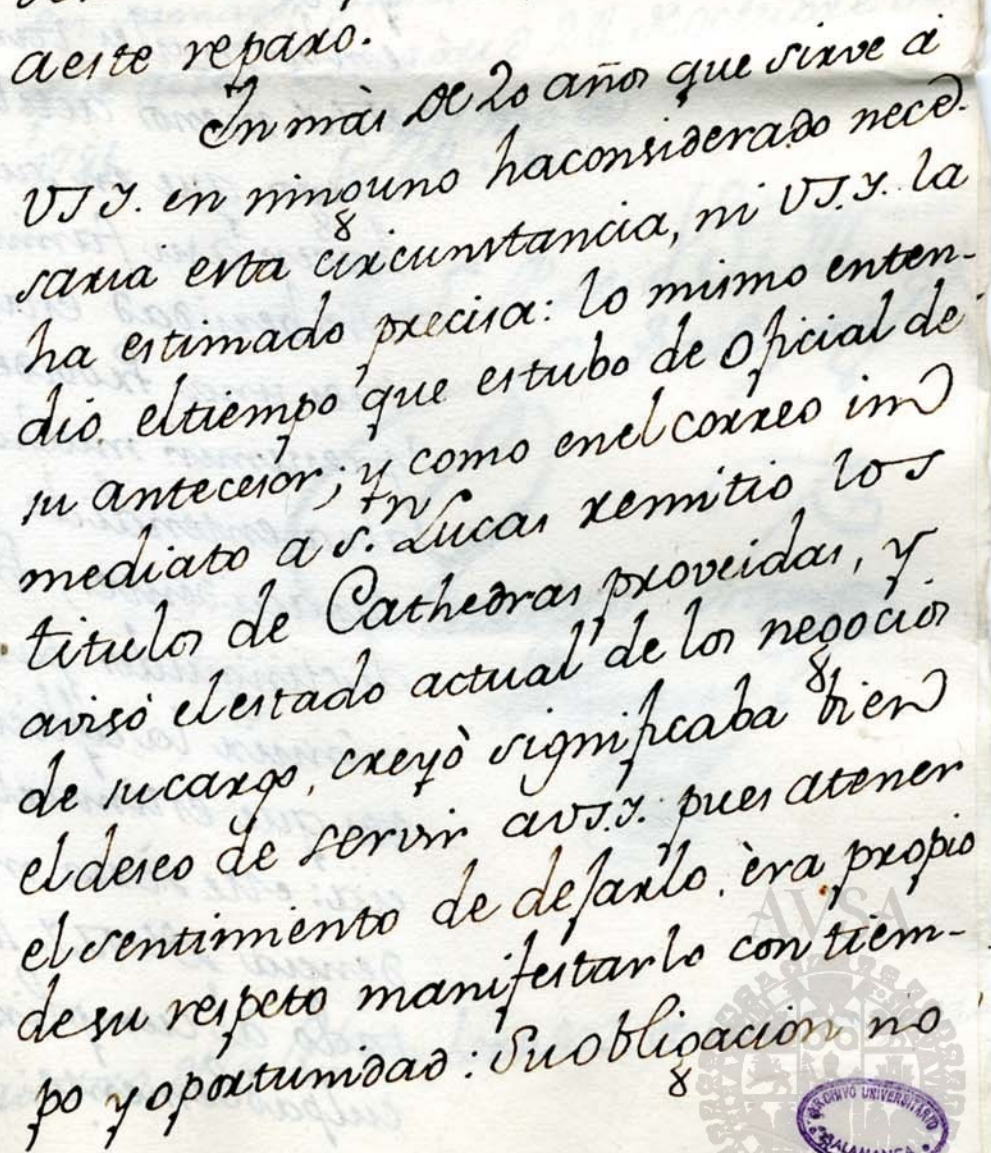 aeste reparo.
En más de 20 años que sirve á
VSY. en ninguno haconsiderado nece-
saria esta circunstancia, ni VSY. la
ha estimado precisa: lo mismo enten-
dió eltiempo que estubo de Oficial de
su antecesor; y como enel correo in
mediato a S.n Lucas remitio los
titulos de Cathedras proveidas, y
avisó elestado actual de los negocios
de sucargo, creyò significaba bien
eldeseo de servir avSY. pues atener
el sentimiento de dejarlo, èra propio
desu respeto manifestarlo con tiem-
po y oportunidad: Su obligacion no
AVSA
ARCHIVO UNIVERSITARIO
SALAMANCA